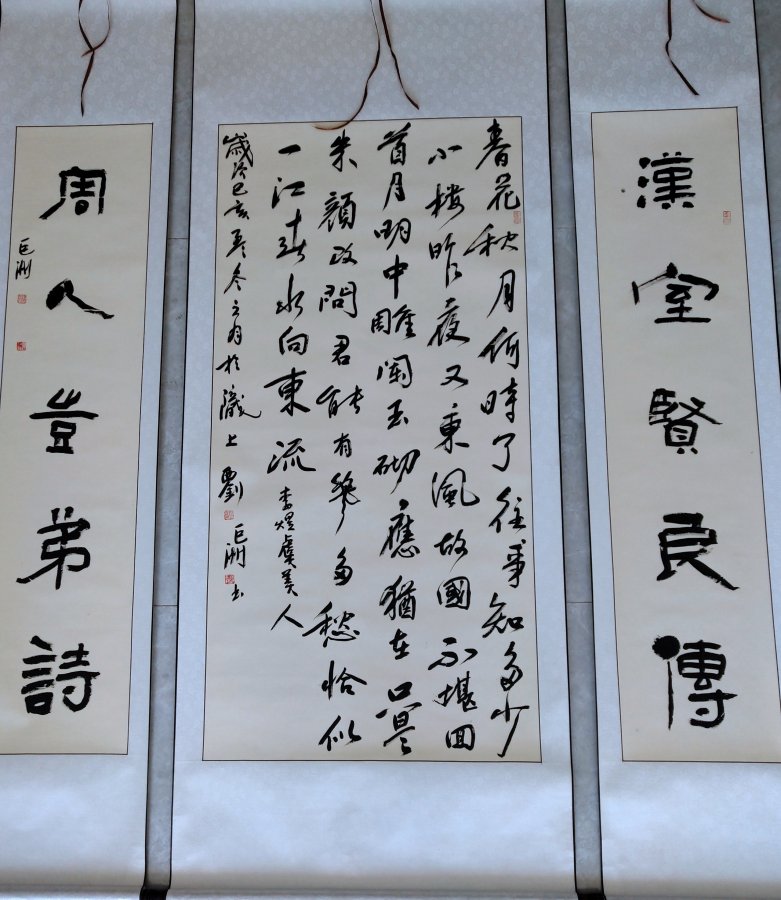 漢室賢良傳
春花秋月何時了往事知多少
小樓昨夜又東風故國不堪回
首月明中雕闌玉砌應猶在只是
朱顏改問君能有幾多愁恰似
一江春水向東流 李煜虞美人
歲次己亥冬之月於上劉巨洲書
周人豈弟詩
巨洲